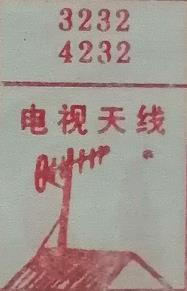 3232
4232
电视天线